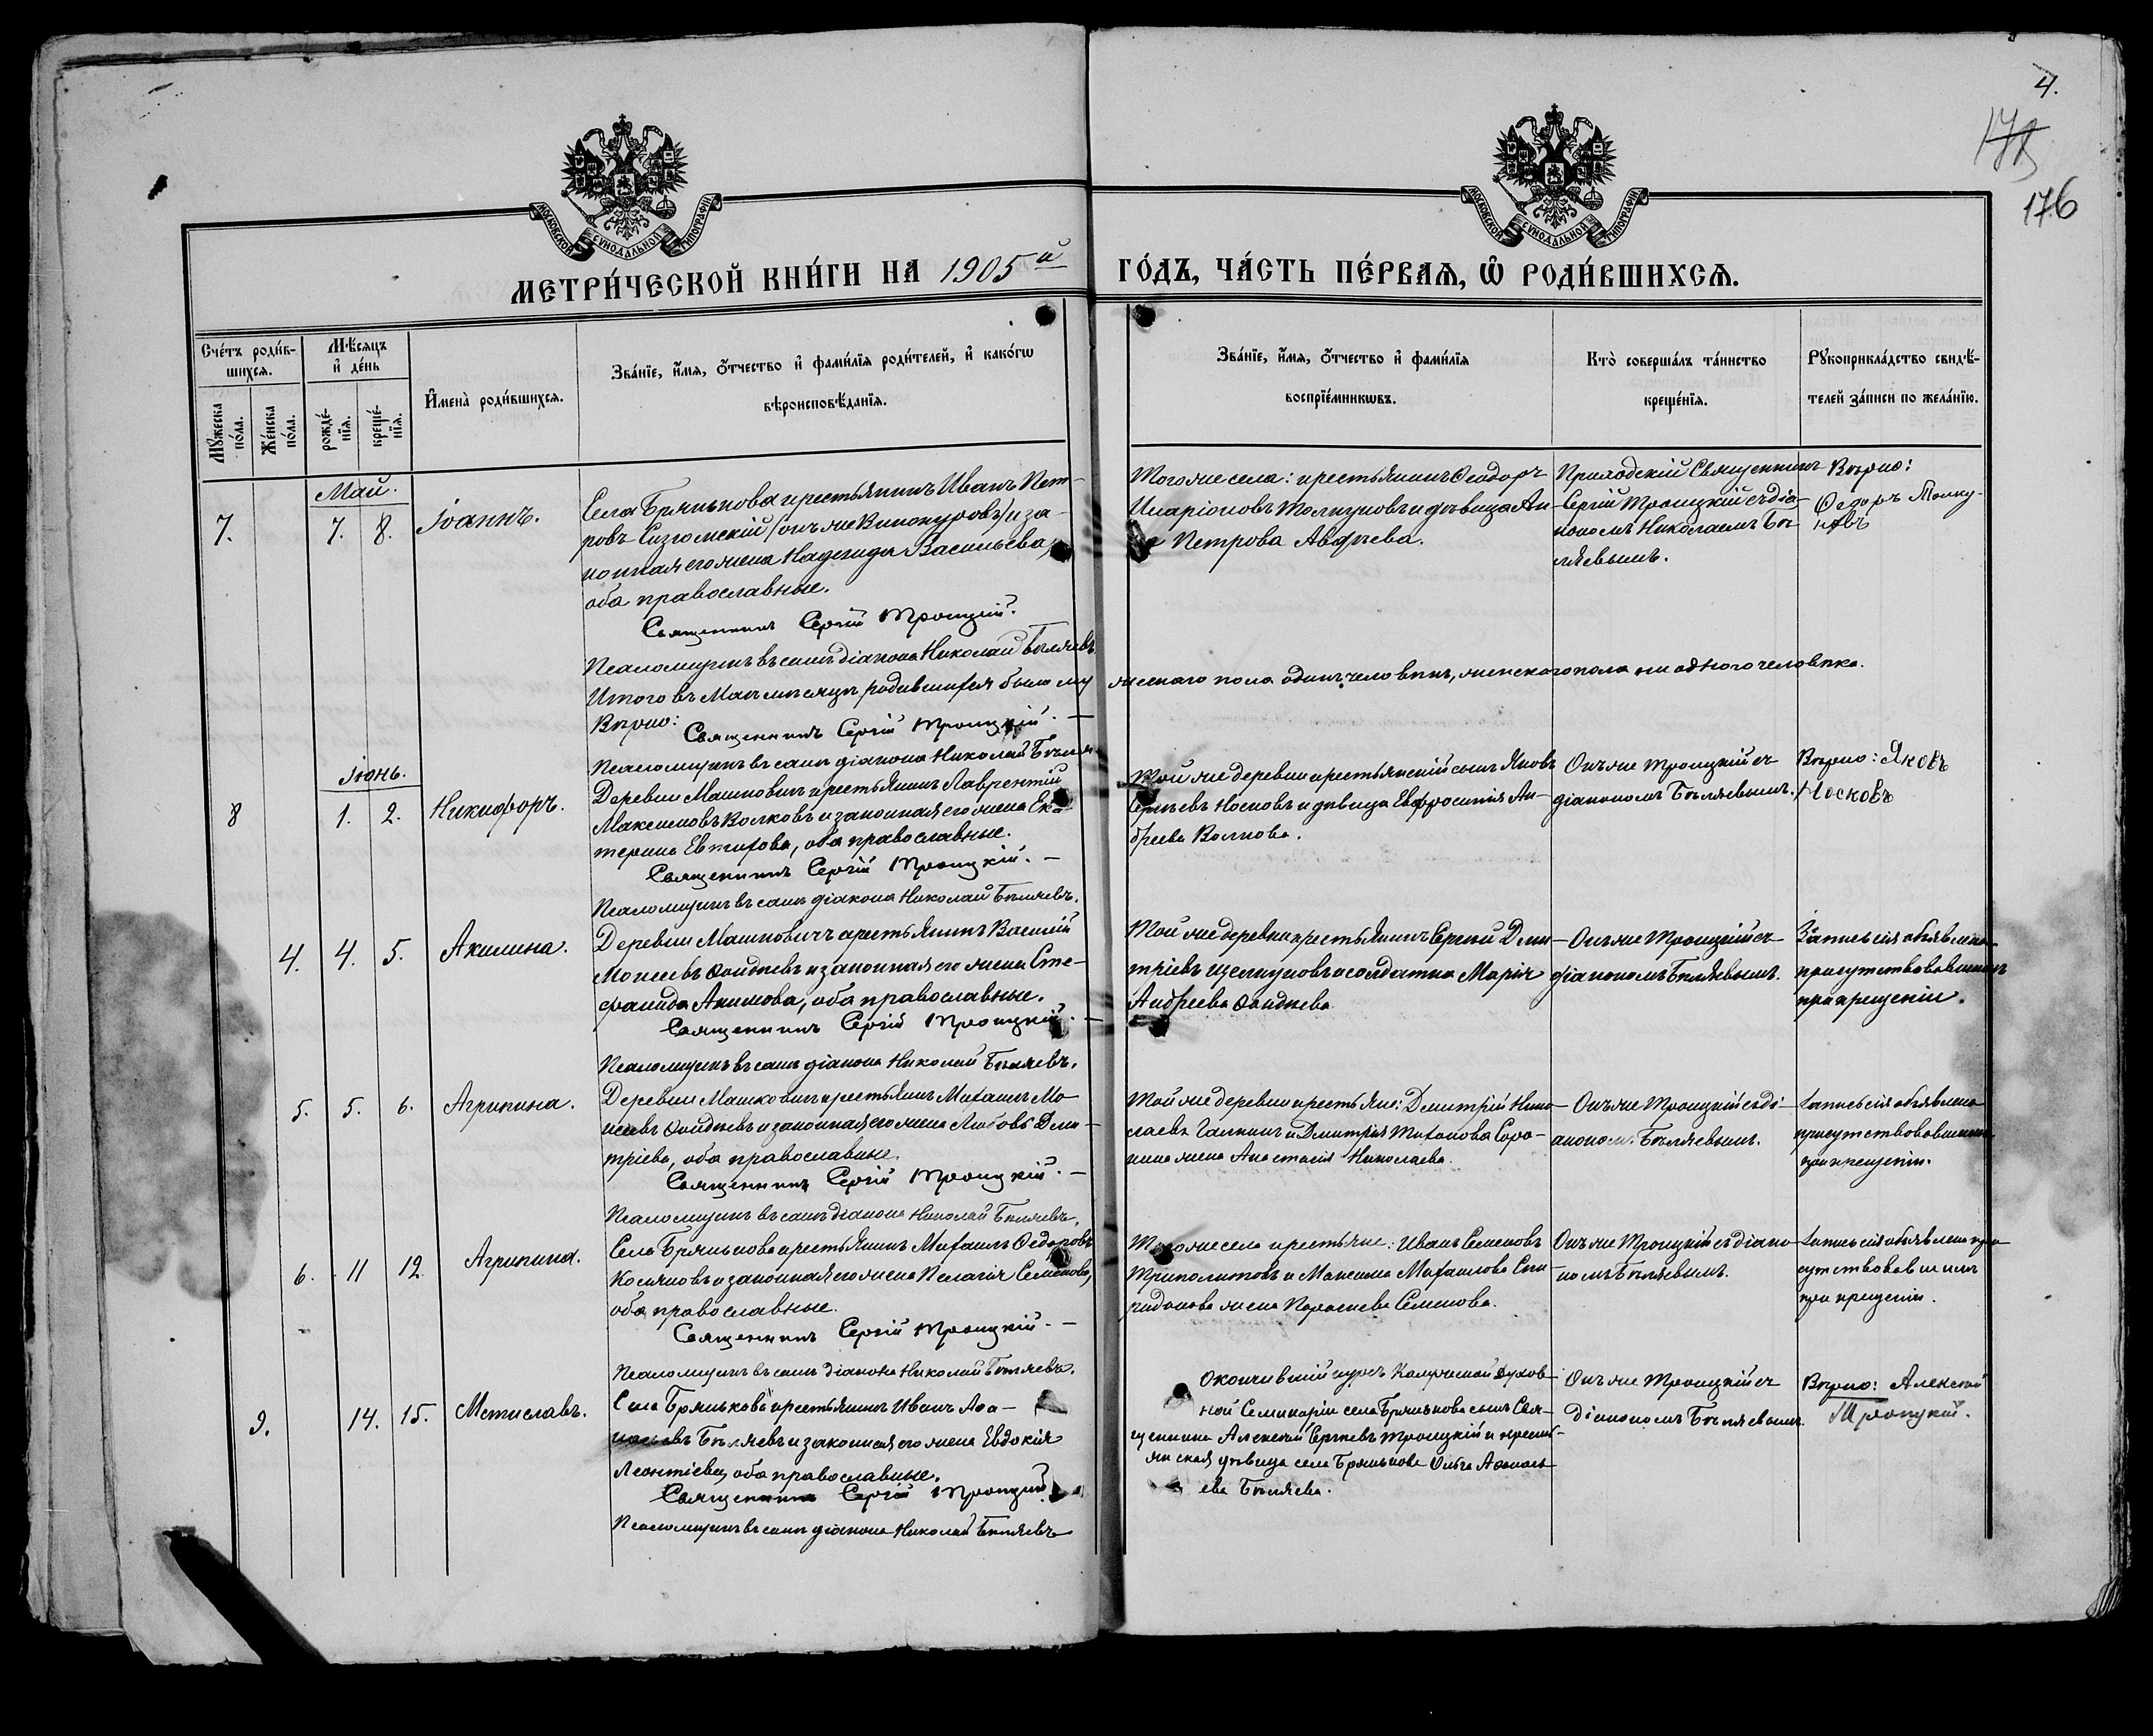 4.
178
176
МОСКОВСКОЙ СѴНОДАЛЬНОЙ ТИПОГРАФІИ
МОСКОВСКОЙ СѴНОДАЛЬНОЙ ТИПОГРАФІИ
МЕТРИ́ЧЕСКОЙ КНИ́ГИ НА 1905й ГО́ДЪ, ЧА́СТЬ ПЕ́РВАѦ, Ѡ҆ РОДИ́ВШИХСѦ.
Сче́тъ роди́в-
шихсѧ.
Мѣ́сяцъ
и҆ де́нь
Мꙋ́жеска
по́ла.
Же́нска
по́ла.
рожде́-
нїѧ.
креще́-
нїѧ.
И҆мена̀ роди́вшихсѧ.
Зва́нїе, и҆́мѧ, ѻ҆́тчество и҆ фами́лїѧ роди́телей, и҆ како́гѡ
вѣроисповѣ́данїѧ.
Зва́нїе, и҆́мѧ, ѻ҆́тчество и҆ фами́лїѧ
воспрїе́мникѡвъ.
Кто̀ соверша́лъ та́инство
креще́нїѧ.
Рꙋкоприкла́дство свидѣ́-
телей за́писи по жела́нїю.
Май.
7. 7. 8. Іоаннъ.
Села Брянькова крестьянинъ Иванъ Пет-
ровъ Сизюмскій /онъ же Винокуровъ/ и за-
конная его жена Надежда Васильева,
оба православные.
Священникъ Сергій Троицкій.
Псаломщикъ въ санѣ діакона Николай Бѣляевъ.
Того же села: крестьянинъ Ѳеодоръ
Иларіоновъ Толкуновъ и дѣвица Ан-
Петрова Авдѣева.
Приходскій Священникъ
Сергій Троицкій съ діа-
кономъ Николаемъ Бѣ-
ляевымъ.
Вѣрно:
Ѳедоръ Толку-
новъ
Итого въ Маѣ мѣсяцѣ родившихся было му жескаго пола одинъ человѣкъ, женскаго пола ни одного человѣка.
Вѣрно: Священникъ Сергій Троицкій. —
Псаломщикъ въ санѣ діакона Николай Бѣляе
Іюнь.
8 1. 2. Никифоръ.
Деревни Машковичъ крестьянинъ Лаврентій
Максимовъ Волковъ и законная его жена Ека-
терина Евтихова, оба православные.
Священникъ Сергій Троицкій. —
Псаломщикъ въ санѣ діакона Николай Бѣляевъ.
Той же деревни крестьянскій сынъ Яковъ
Сергѣевъ Носковъ и дѣвица Евфросинія Ан-
дреева Волкова.
Онъ же Троицкій съ
діакономъ Бѣляевымъ.
Вѣрно: Яковъ
Носковъ
4. 4. 5. Акилина.
Деревни Машковичъ крестьянинъ Василій
Моисеевъ Фандѣевъ и законная его жена Сте-
фанида Акимова, оба православные.
Священникъ Сергій Троицкій. —
Псаломщикъ въ санѣ діакона Николай Бѣляевъ.
Той же деревни крестьянинъ Сергій Дми-
тріевъ Щелкуновъ и солдатка Марія
Андреева Фандѣева
Онъ же Троицкій съ
діакономъ Бѣляевымъ.
Запись сія объявлена
присутствовавшимъ
при крещеніи.
5. 5. 6. Агрипина.
Деревни Машковичъ крестьянинъ Михаилъ Мо-
исеевъ Фандѣевъ и законная его жена Любовь Дми-
тріева, оба православные.
Священникъ Сергій Троицкій. —
Псаломщикъ въ санѣ діакона Николай Бѣляевъ.
Той же деревни крестьяне: Димитрій Нико-
лаевъ Галкинъ и Димитрія Тихонова Соро-
кина жена Анастасія Николаева
Онъ же Троицкій съ ді-
акономъ Бѣляевымъ.
Запись сія объявлена
присутствовавшимъ
при крещеніи.
6. 11 12. Агрипина.
Села Брянькова крестьянинъ Михаилъ Ѳедоровъ
Косяковъ и законная его жена Пелагія Семенова,
оба православные.
Священникъ Сергій Троицкій. —
Псаломщикъ въ санѣ діакона Николай Бѣляевъ.
Того же села крестьяне: Иванъ Семеновъ
Триполитовъ и Максима Михаилова Спи-
ридонова жена Параскева Семенова.
Онъ же Троицкій съ діако-
номъ Бѣляевымъ.
Запись сія объявлена при
сутствовавшимъ
при крещеніи.
9. 14. 15. Мстиславъ.
Села Брянькова крестьянинъ Иванъ Афа-
насьевъ Бѣляевъ и законная его жена Евдокія
Леонтіева, оба православные.
Священникъ Сергій Троицкій
Псаломщикъ въ санѣ діакона Николай Бѣляевъ
Окончившій курсъ Калужской Духов-
ной Семинаріи села Брянькова сынъ Свя-
щенника Алексѣй Сергѣевъ Троицкій и кресть-
янская дѣвица села Брянькова Ольга Афанась-
ева Бѣляева.
Онъ же Троицкій съ
діакономъ Бѣляевымъ.
Вѣрно: Алексѣй
Троицкій.